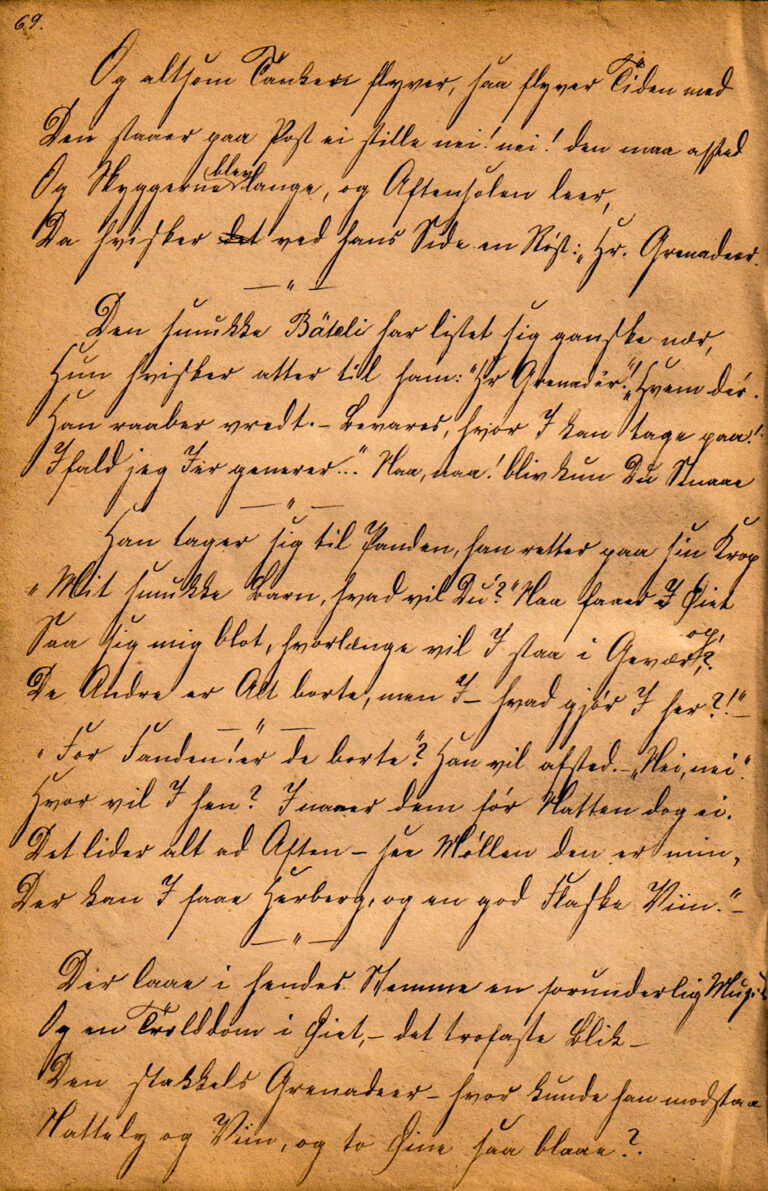 69.
Og altsom Tanken flyver, saa flyver Tiden med
Den staaer paa Post ei stille nei! nei! den maa afsted
Og Skyggerne blev lange, og Aftensolen leer,
Da hvisker det ved hans Side en Røst: „Hr. Grenadeer.
— „ —
Den smukke Bäteli har listet sig ganske nær,
Hun hvisker atter til ham: "Hr Grenadër!" „Hvem dér.
Han raaber vredt. – Bevares, hvor I kan tage paa!
Ifald jeg Jer generer..." Naa, naa! bliv kun Du Smaae
— „ —
Han tager sig til Panden, han retter paa sin Krop
„Mit smukke Barn, hvad vil Du?" Naa faaer I Øiet op,
Saa sig mig blot, hvorlænge vil I staa i Gevær?
De Andre er Alt borte, men I – hvad gjør I her?!"–
— „ —
„For Fanden! er de borte"? Han vil afsted. – „Nei, nei".
Hvor vil I hen? I naaer dem før Natten dog ei.
Det lider alt ad Aften – see Møllen den er min,
Der kan I faae Herberg, og en god Flaske Viin."–
— „ —
Der laae i hendes Stemme en forunderlig Musik
Og en Trolddom i Øiet, – det trofaste Blik –
Den stakkels Grenadeer – hvor kunde han modstaa
Nattely og Viin, og to Øine saa blaae?.